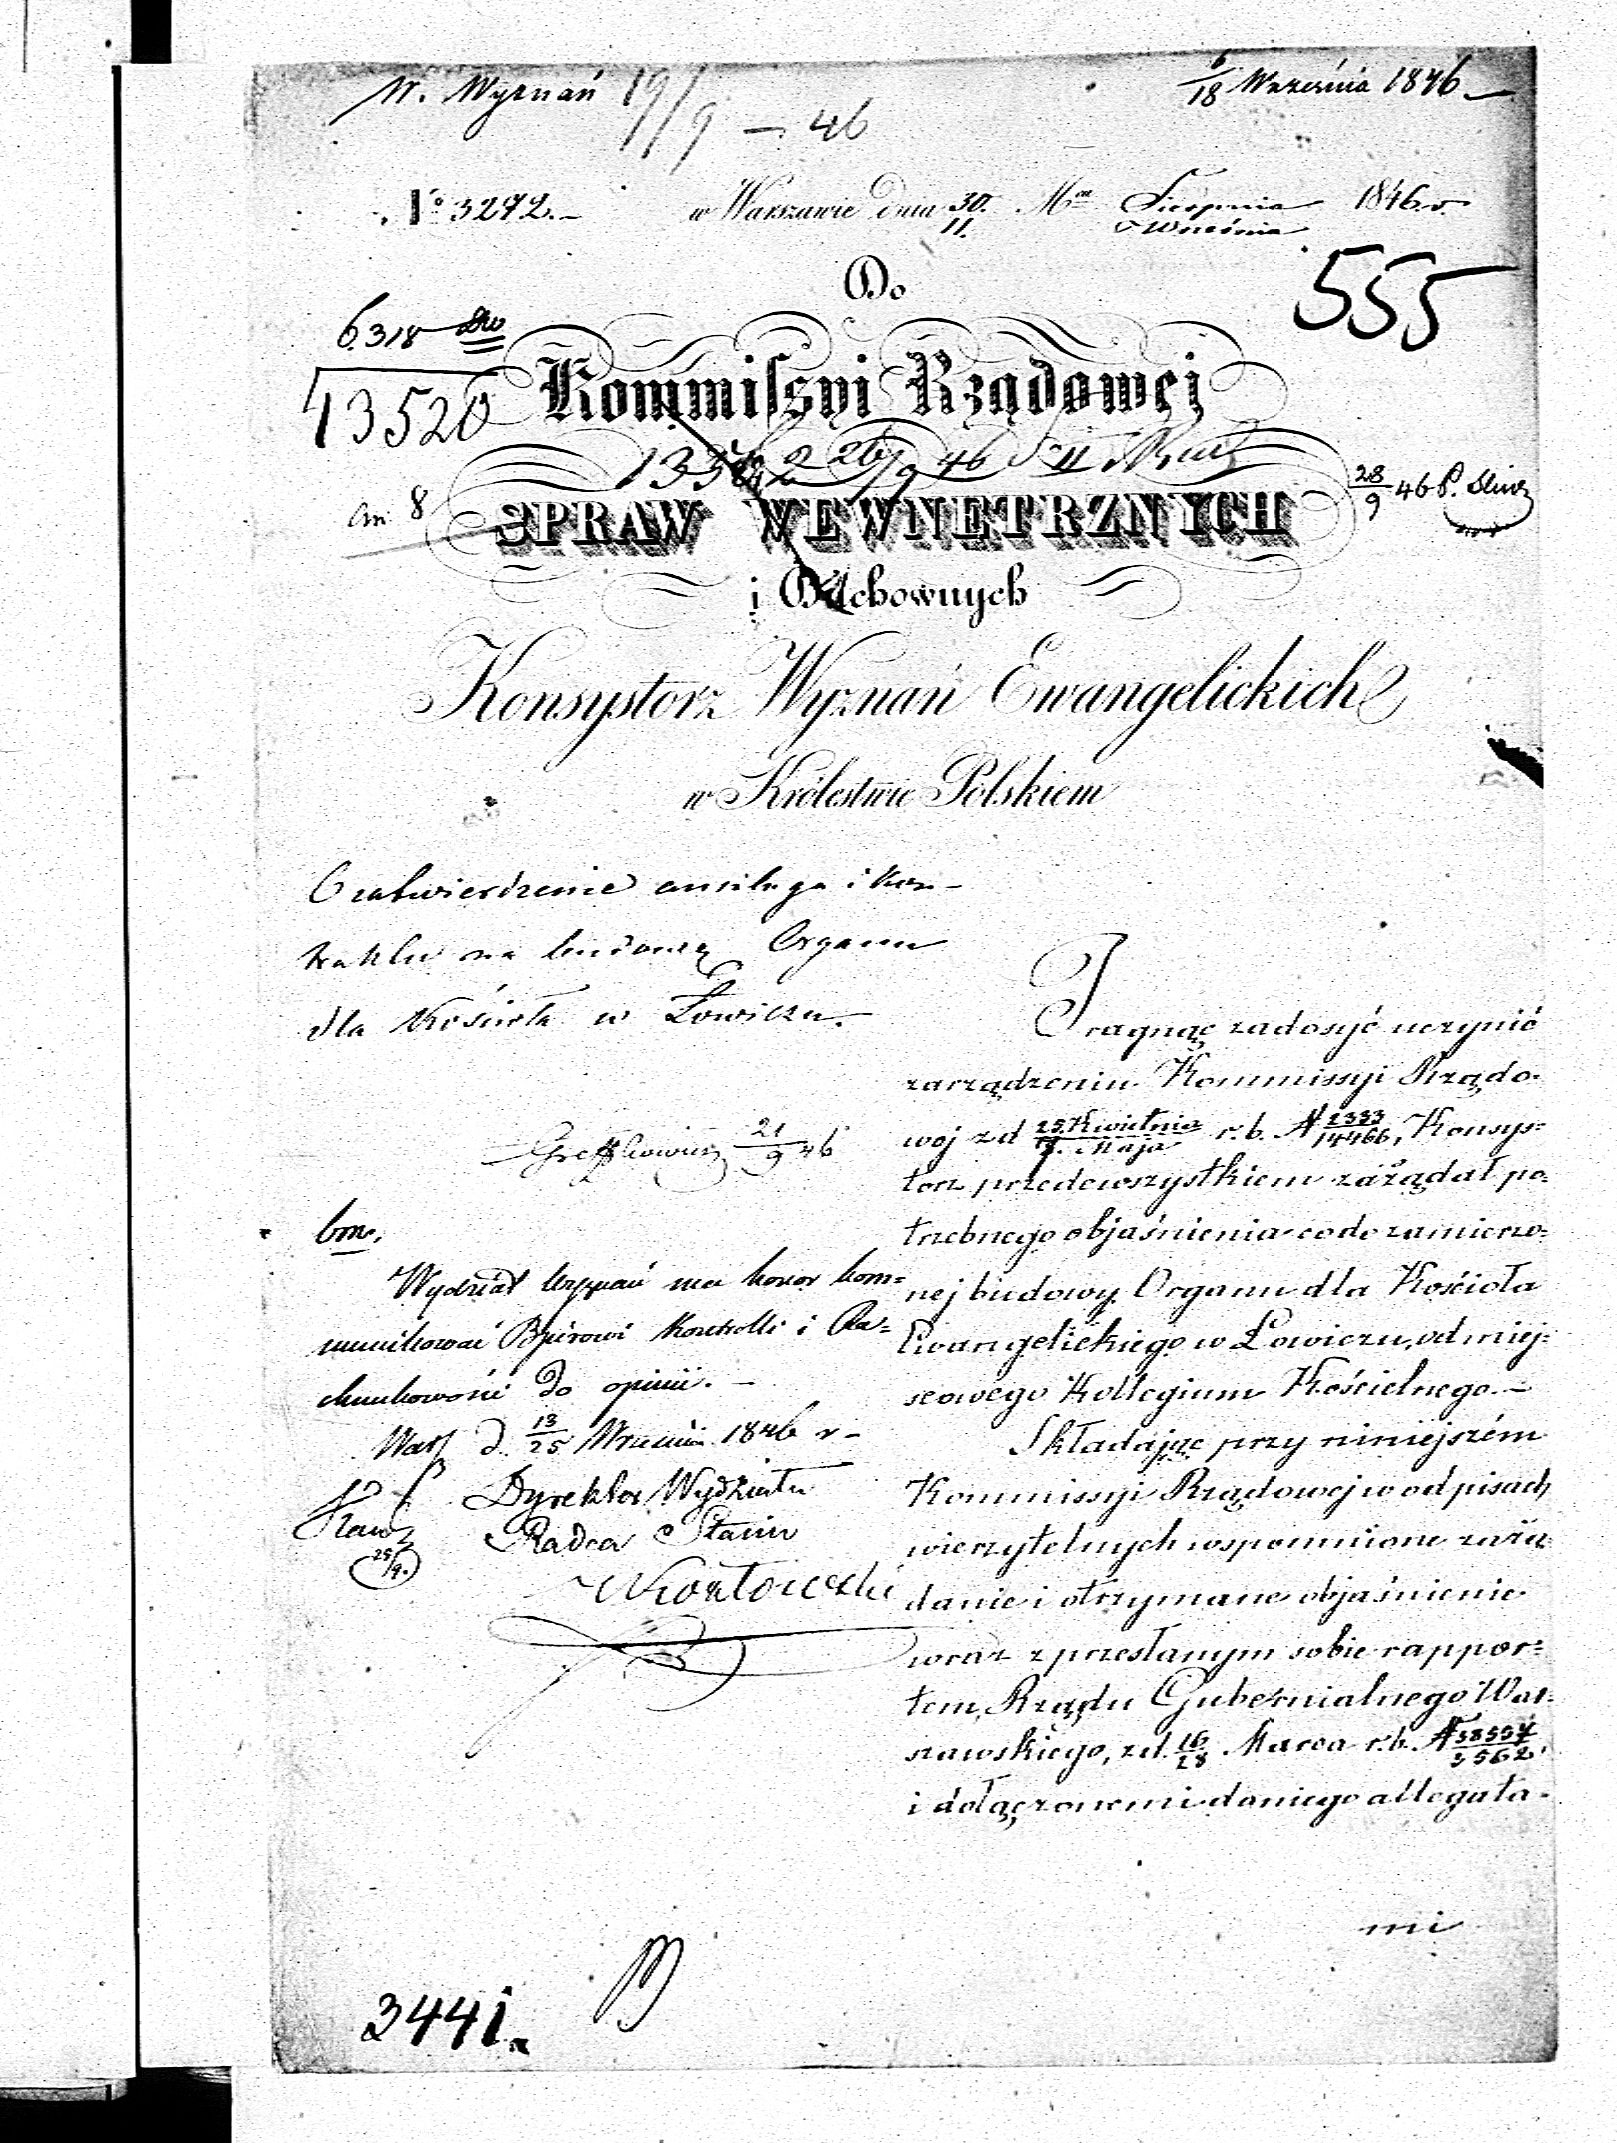 W. Wyznań 19/9 – 46
6/18 Września 1846
№ 3272. w Warszawie dnia 30./11. Mca Sierpnia/Września 1846 r.
555
Do
6318
Kommissyi Rządowej
13520
26/9 46
28/9 46
SPRAW WEWNĘTRZNYCH
i Duchownych
Konsystorz Wyznań Ewangelickich
w Królestwie Polskiem
O zatwierdzenie anszlagu i kon-
traktu na budowę Organu
dla Kościoła w Łowiczu.
21/9 46
bm.
Wydział Wyznań ma honor kom=
munikować Biurowi Kontrolli i Ra=
chunkowości do opinii. –
Warsz d. 13/25 Września 1846 r –
Dyrektor Wydziału
Radca Stanu
25/9.
Pragnąc zadosyć uczynić
zarządzeniu Kommissyi Rządo-
wej z d. 25. Kwietnia/7. Maja r. b. № 2333/14466, Konsys=
torz przedewszystkiem zażądał po=
trzebnego objaśnienia co do zamierzo=
nej budowy Organu dla Kościoła
Ewangelickiego w Łowiczu, od miej=
scowego Kollegium Kościelnego. –
Składając przy niniejszém
Kommissyi Rządowej w odpisach
wierzytelnych wspomnione zażą=
danie i otrzymane objaśnienie
wraz z przesłanym sobie rappor=
tem, Rządu Gubernialnego War=
szawskiego, z d. 16/28 Marca r. b. № 38557/3562,
i dołączonemi do niego allegata-
mi
3441.